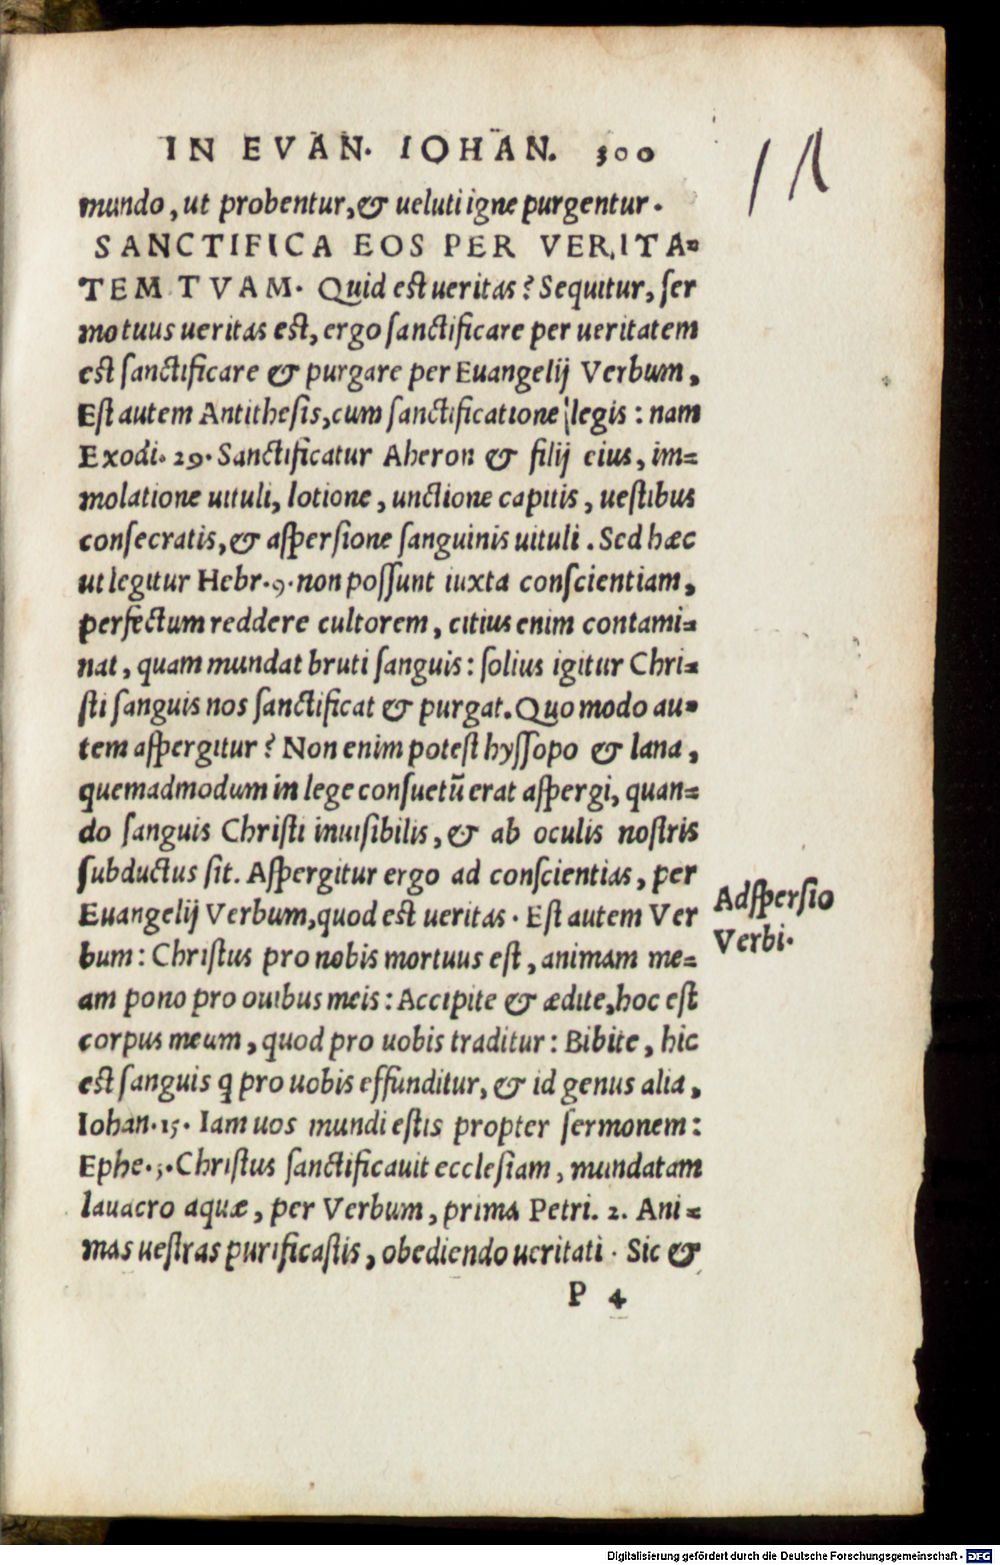 IN EVAN. IOHAN. 300
mundo, ut probentur, & ueluti igne purgentur.
SANCTIFICA EOS PER VERITA=
TEM TVAM. Quid est ueritas? Sequitur, ser
mo tuus ueritas est, ergo sanctificare per ueritatem
est sanctificare & purgare per Euangelij Verbum,
Est autem Antithesis, cum sanctificatione legis: nam
Exodi. 29. Sanctificatur Aheron & filij eius, im=
molatione uituli, lotione, unctione capitis, uestibus
consecratis, & aspersione sanguinis uituli. Sed hæc
ut legitur Hebr. 9. non possunt iuxta conscientiam,
perfectum reddere cultorem, citius enim contami=
nat, quam mundat bruti sanguis: solius igitur Chri=
sti sanguis nos sanctificat & purgat. Quo modo au=
tem aspergitur? Non enim potest hyssopo & lana,
quemadmodum in lege consuetū erat aspergi, quan=
do sanguis Christi inuisibilis, & ab oculis nostris
subductus sit. Aspergitur ergo ad conscientias, per
Euangelij Verbum, quod est ueritas. Est autem Ver
bum: Christus pro nobis mortuus est, animam me=
am pono pro ouibus meis: Accipite & ædite, hoc est
corpus meum, quod pro uobis traditur: Bibite, hic
est sanguis q pro uobis effunditur, & id genus alia,
Iohan. 15. Iam uos mundi estis propter sermonem:
Ephe. 5. Christus sanctificauit ecclesiam, mundatam
lauacro aquæ, per Verbum, prima Petri. 2. Ani=
mas uestras purificastis, obediendo ueritati. Sic &
P 4
Adspersio
Verbi.
Digitalisierung gefördert durch die Deutsche Forschungsgemeinschaft - DFG